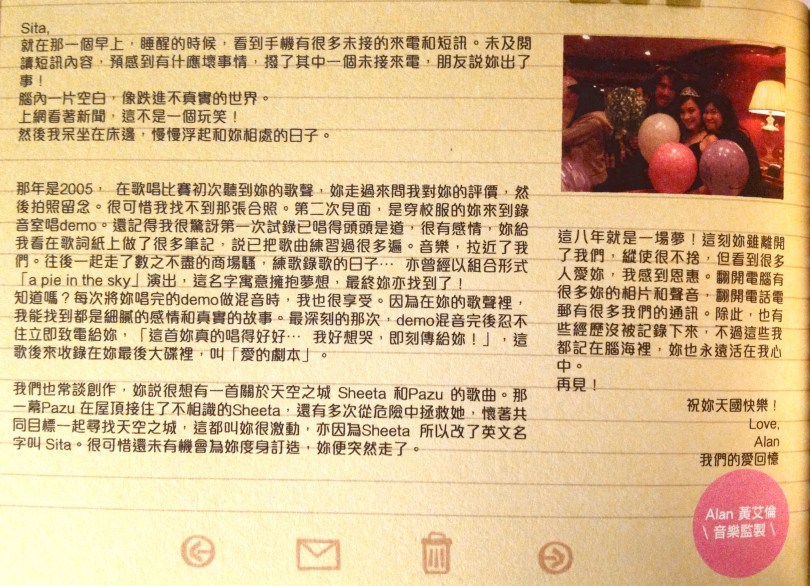 Sita,
就在那一個早上，睡醒的時候，看到手機有很多未接的來電和短訊。未及閱
讀短訊內容，預感到有什應壞事情，撥了其中一個未接來電，朋友説妳出了
事！
腦內一片空白，像跌進不真實的世界。
上網看著新聞，這不是一個玩笑！
然後我呆坐在床邊，慢慢浮起和妳相處的日子。
那年是2005， 在歌唱比賽初次聽到妳的歌聲，妳走過來問我對妳的評價，然
後拍照留念。很可惜我找不到那張合照。第二次見面，是穿校服的妳來到錄
音室唱demo。還記得我很驚訝第一次試錄已唱得頭頭是道，很有感情，妳給
我看在歌詞紙上做了很多筆記，説已把歌曲練習過很多遍。音樂，拉近了我
們。往後一起走了數之不盡的商場騷，練歌錄歌的日子… 亦曾經以組合形式
「a pie in the sky」演出，這名字寓意擁抱夢想，最終妳亦找到了！
知道嗎？每次將妳唱完的demo做混音時，我也很享受。因為在妳的歌聲裡，
我能找到都是細膩的感情和真實的故事。最深刻的那次，demo混音完後忍不
住立即致電給妳，「這首妳真的唱得好好… 我好想哭，即刻傳給妳！」，這
歌後來收錄在妳最後大碟裡，叫「愛的劇本」。
我們也常談創作，妳説很想有一首關於天空之城 Sheeta 和Pazu 的歌曲。那
一幕Pazu 在屋頂接住了不相識的Sheeta，還有多次從危險中拯救她，懷著共
同目標一起尋找天空之城，這都叫妳很激動，亦因為Sheeta 所以改了英文名
字叫 Sita。很可惜還未有機會為妳度身訂造，妳便突然走了。
這八年就是一場夢！這刻妳雖離開
了我們，縱使很不捨，但看到很多
人愛妳，我感到恩惠。翻開電腦有
很多妳的相片和聲音，翻開電話電
郵有很多我們的通訊。除此，也有
些經歷沒被記錄下來，不過這些我
都記在腦海裡，妳也永遠活在我心
中。
再見！
祝妳天國快樂！
Love,
Alan
我們的愛回憶
Alan 黃艾倫
\ 音樂監製 \